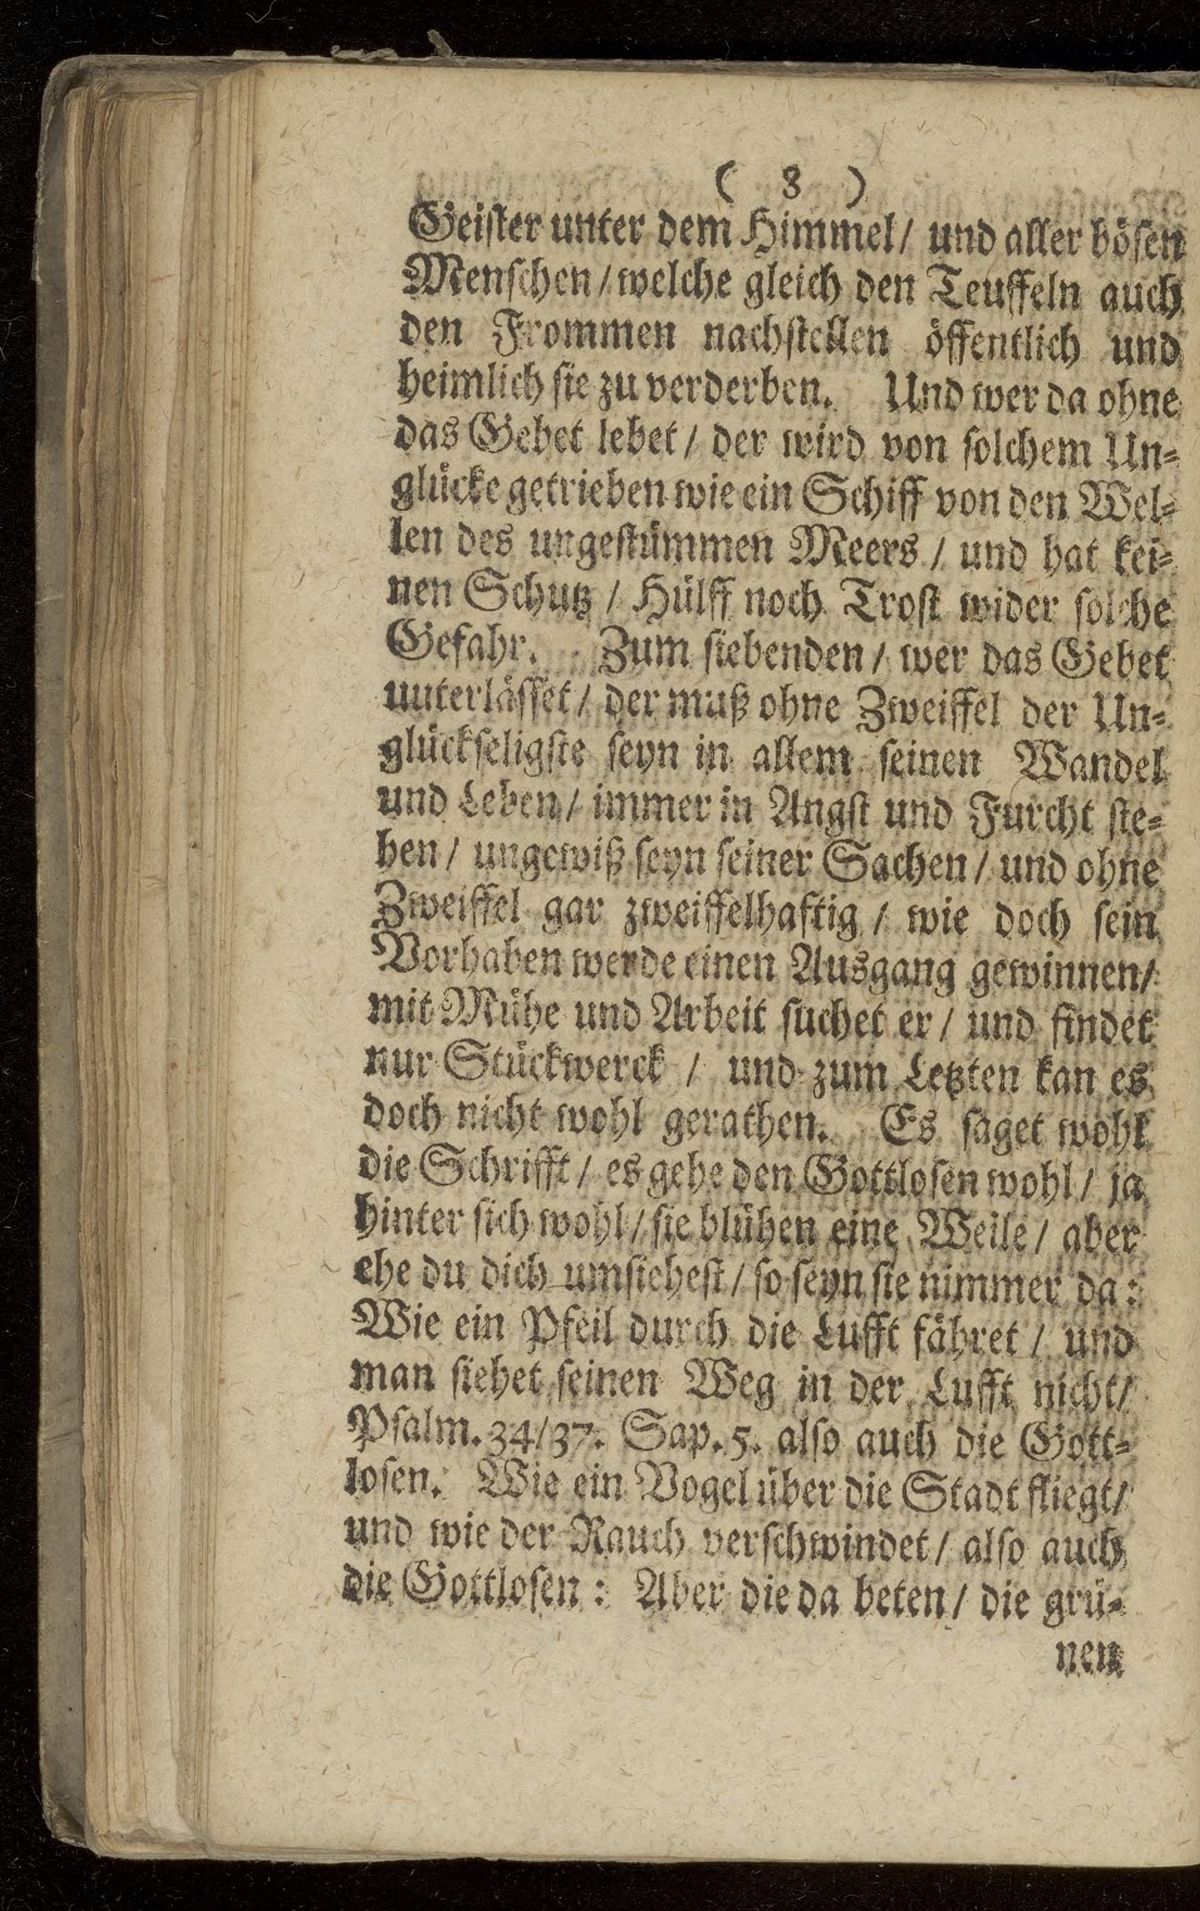 ( 8 )
Geister unter dem Himmel/ und aller bösen
Menschen/ welche gleich den Teuffeln auch
den Frommen nachstellen öffentlich und
heimlich sie zu verderben. Und wer da ohne
das Gebet lebet/ der wird von solchem Un-
glücke getrieben wie ein Schiff von den Wel-
len des ungestümmen Meers/ und hat kei-
nen Schutz/ Hülff noch Trost wider solche
Gefahr. Zum siebenden/ wer das Gebet
unterlässet/ der muß ohne Zweiffel der Un-
glückseligste seyn in allem seinen Wandel
und Leben/ immer in Angst und Furcht ste-
hen/ ungewiß seyn seiner Sachen/ und ohne
Zweiffel gar zweiffelhafftig/ wie doch sein
Vorhaben werde einen Ausgang gewinnen/
mit Mühe und Arbeit suchet er/ und findet
nur Stückwerck/ und zum Letzten kan es
doch nicht wohl gerathen. Es saget wohl
die Schrifft/ es gehe den Gottlosen wohl/ ja
hinter sich wohl/ sie blühen eine Weile/ aber
ehe du dich umsiehest/ so seyn sie nimmer da:
Wie ein Pfeil durch die Lufft fähret/ und
man siehet seinen Weg in der Lufft nicht/
Psalm. 34/37. Sap. 5. also auch die Gott-
losen. Wie ein Vogel über die Stadt fliegt/
und wie der Rauch verschwindet/ also auch
die Gottlosen: Aber die da beten/ die grü-
nen